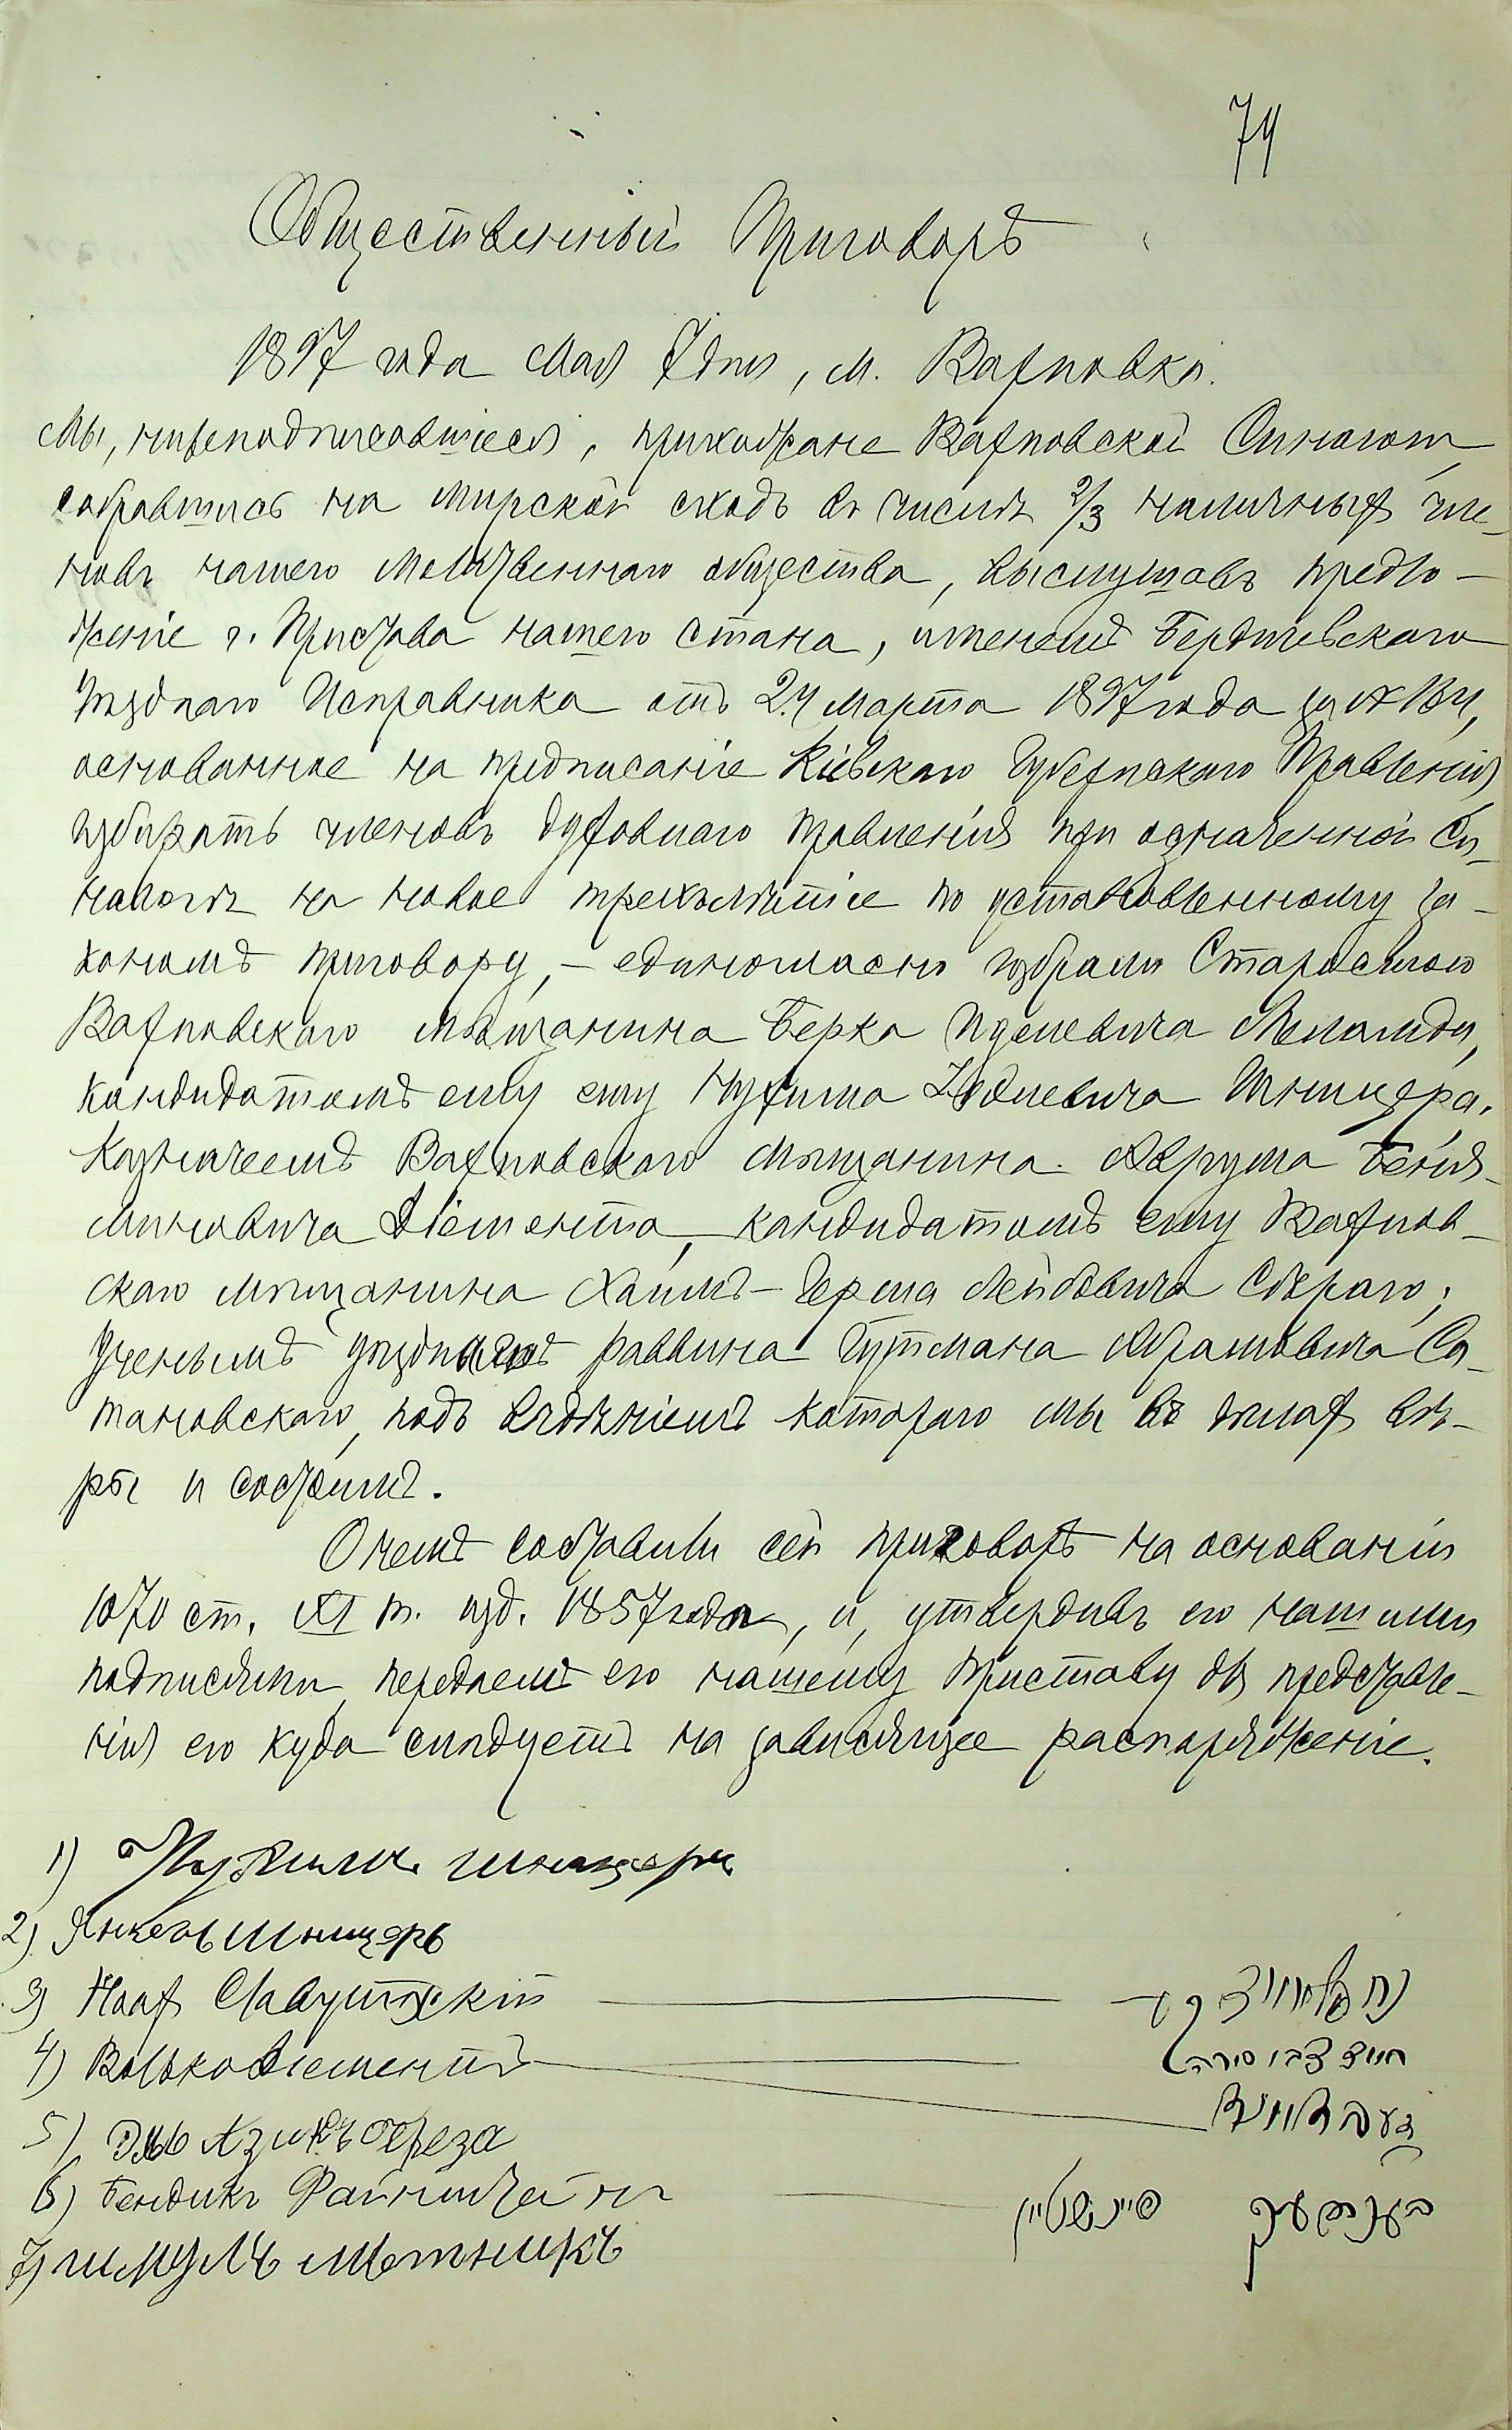 74
Общественный Приговоръ
1897 года Мая 7 дня, м. Вахновка.
Мы, нижеподписавшіеся, прихожане Вахновской Синагоги,
собравшись на мирской сходъ въ числѣ 2/3 наличныхъ чле-
новъ нашего молитвеннаго общества, выслушавъ предло-
женіе г. Пристава нашего стана, Бердичевскаго
Уѣзднаго Исправника отъ 24 Марта 1897 года за №
основанное на предписаніе Кіевскаго Губернскаго Правленія
избирать членовъ духовнаго правленія при означенной Си-
нагогѣ на новое трехлѣтіе по установленному за-
кономъ приговору, – единогласно избрали Старостою
Вахновскаго мѣщанина Берка
кандидатомъ ему ему Нухима Шницера,
Казначеемъ Вахновскаго мѣщанина Аврума Бенія-
миновича Діемента, кандидатомъ ему Вахнов-
скаго мѣщанина Хаимъ-Герша Лейбовича Сѣраго;
Ученымъ раввина Гутмана Абрамовича Са-
тановскаго, подъ вѣдѣніемъ котораго мы въ дѣлахъ вѣ-
ры и состоимъ.
О чемъ составили сей приговоръ на основаніи
1070 ст. XI т. изд. 1857 года, и, утвердивъ его нашими
подписями, передаемъ его нашему Приставу для представле-
нія его куда слѣдуетъ на зависящее распоряженіе.
1) Нухимъ Шницеръ
2) Янкель Шницеръ
3) Ноах Славутскій
4) Волько Діементъ
5) Эль Азикъ береза
6) Бендикъ Файнштейнъ
בענדעק פיינשטיין
7) Шмуль мѣтникъ